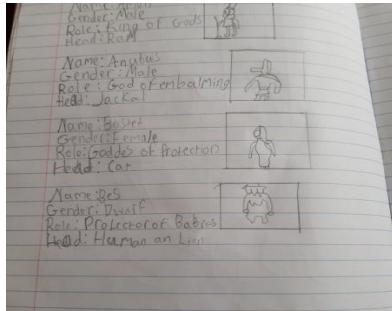 Gender: Male
Role: King of Gods
Head: Ram
Name: Anubus
Gender: Male
Role: God of enbalming
Head: Jackal
Name: Bastet
Gender: Female
Role: Goddes of Protection
Head: Cat
Name: Bes
Gender: Dwarf
Role: Protector of Babies
Head: Human an Lion